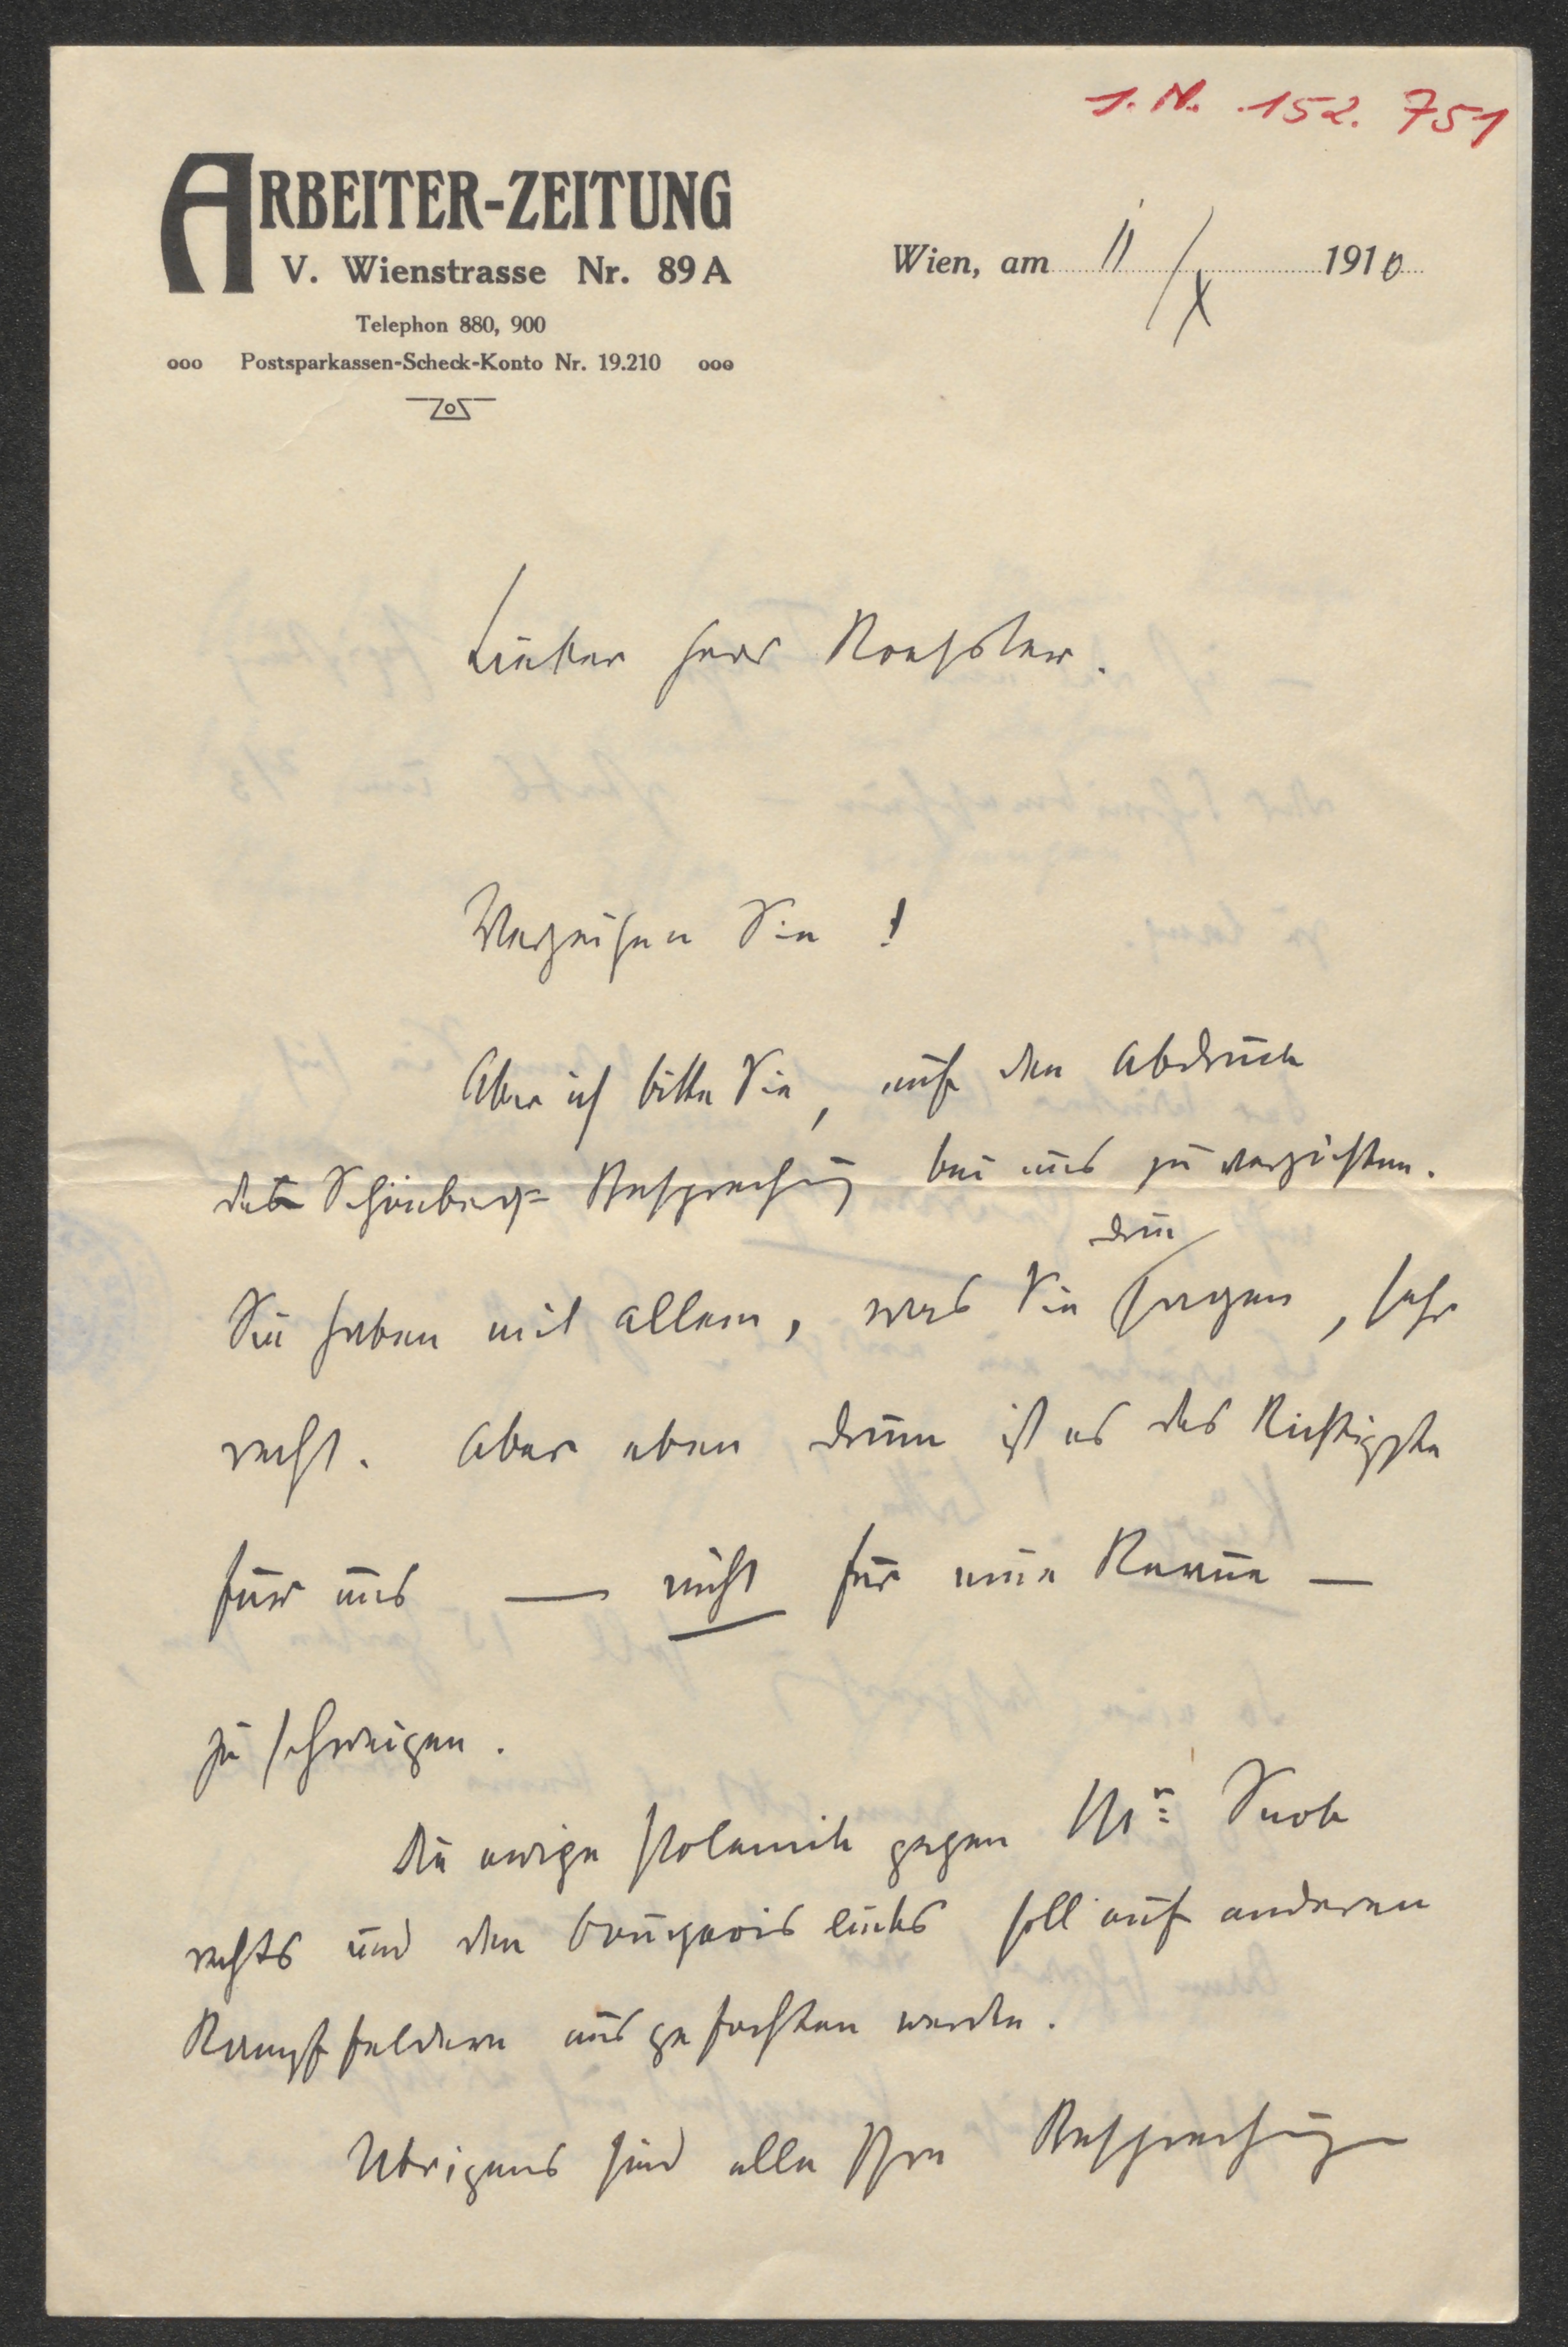 I. N. 152.751
ARBEITER-ZEITUNG
V. Wienstrasse Nr. 89 A
Telephon 880, 900
ooo Postsparkassen-Scheck-Konto Nr. 19.210 ooo
Wien, am 11/X 1910
Lieber Herr Roessler.
Verzeihen Sie!
Aber ich bitte Sie, auf den Abdruck
der Schönberg= Besprechung bei uns zu verzichten.
drin
Sie haben mit allem, was Sie sagen, sehr
recht. Aber eben drum ist es das Richtigste
für uns — nicht für eine Revue —
zu schweigen.
Die ewige Polemik gegen Mr= Snob
rechts und den Bourgeois links soll auf anderen
Kampffeldern ausgefochten werden.
Übrigens sind alle Ihre Besprechungen